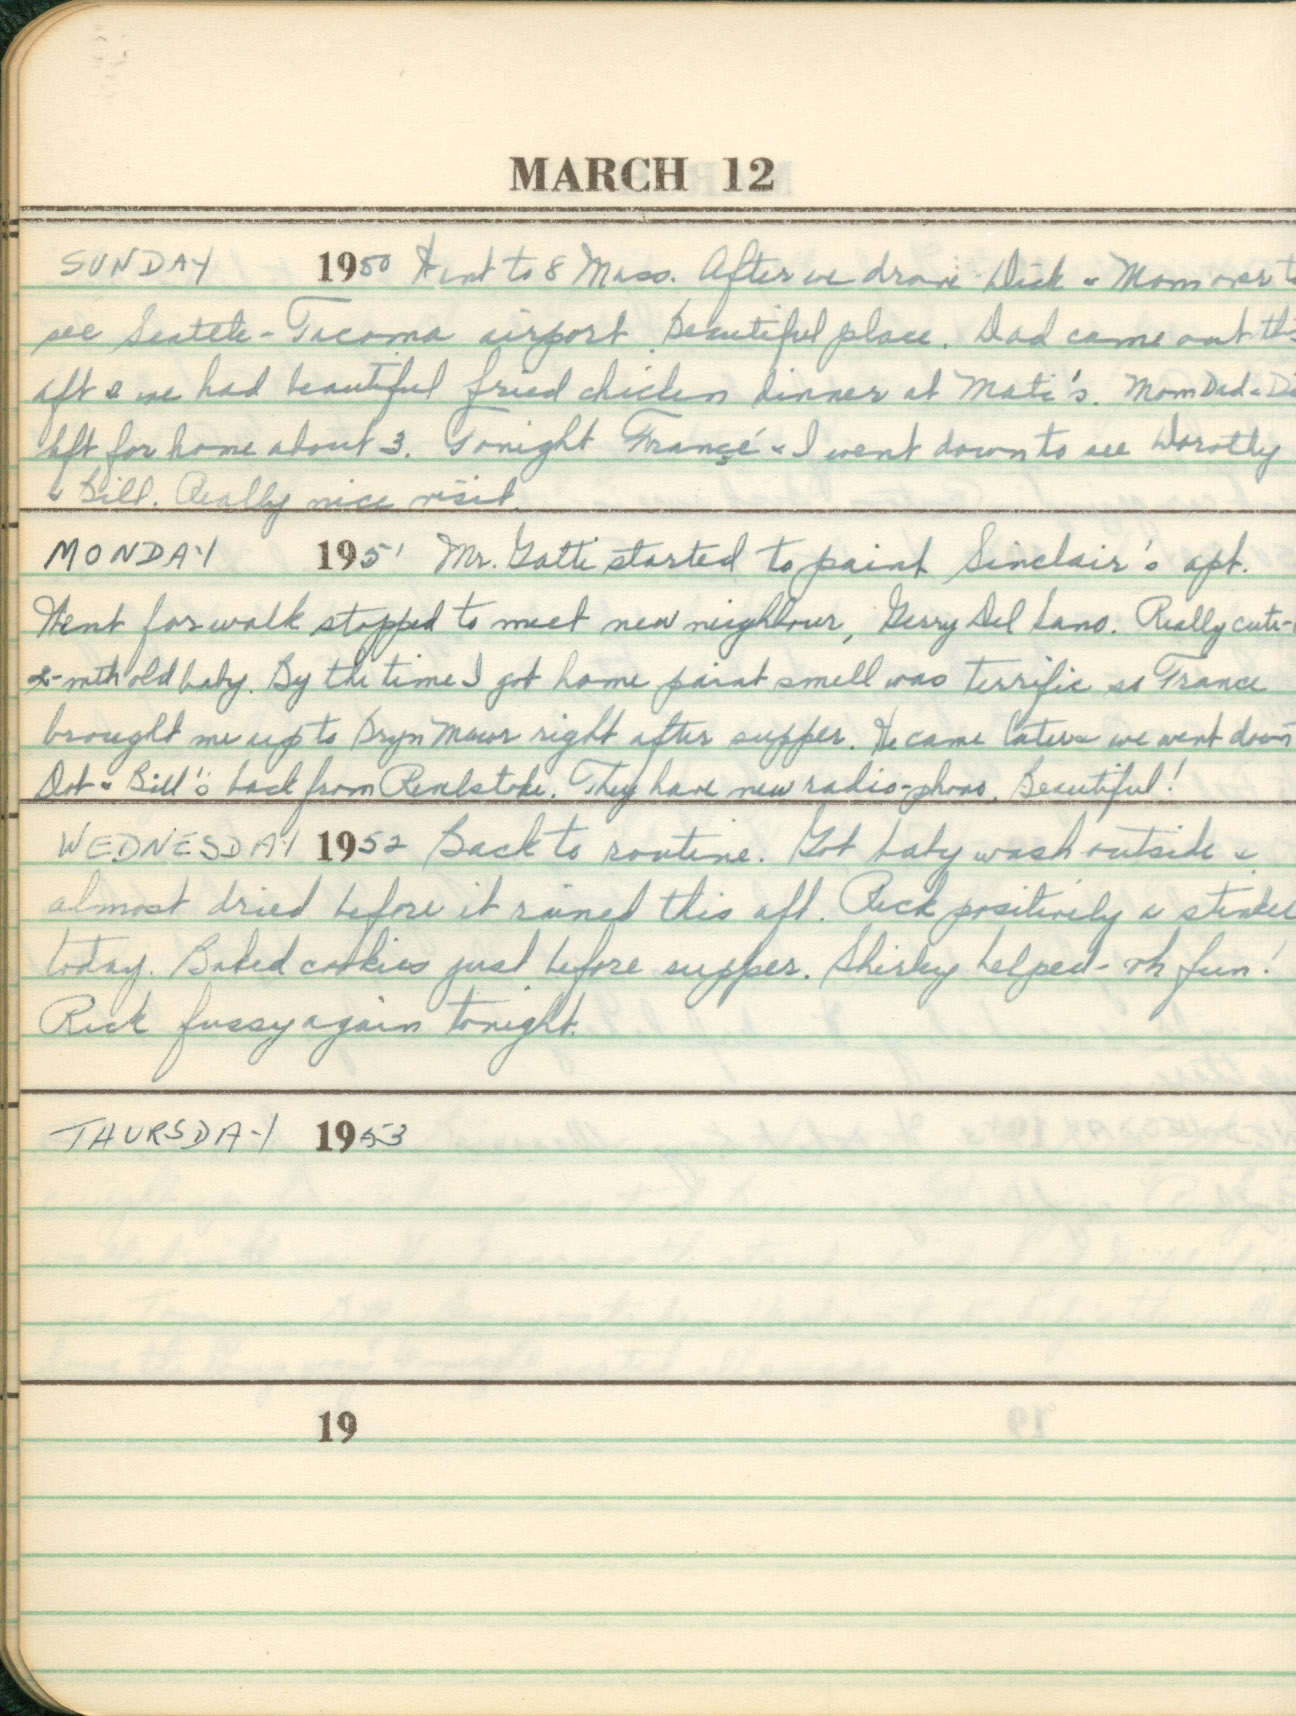 MARCH 12
SUNDAY 1950 Went to 8 Mass. After we drove Dick & Mom over to
see Seattle-Tacoma airport. Beautiful place. Dad came out this
aft & we had beautiful fried chicken dinner at Mati's. Mom Dad & Di
left for home about 3. Tonight France & I went down to see Dorothy
& Bill. Really nice visit.
MONDAY 1951 Mr. Gatti started to paint Sinclair's apt.
Went for walk stopped to meet new neighbour, Gerry Del Lano. Really cute-
2-mth old baby. By the time I got home paint smell was terrific so France
brought me up to Bryn Mawr right after supper. He came later & we went down
Dot & Bill's back from. They have new radio-phono. Beautiful!
WEDNESDAY 1952 Back to routine. Got baby wash outside &
almost dried before it rained this aft. Rick positively a stinker
today. Baked cookies just before supper. Shirley helped - oh fun!
Rick fussy again tonight.
THURSDAY 1953
19